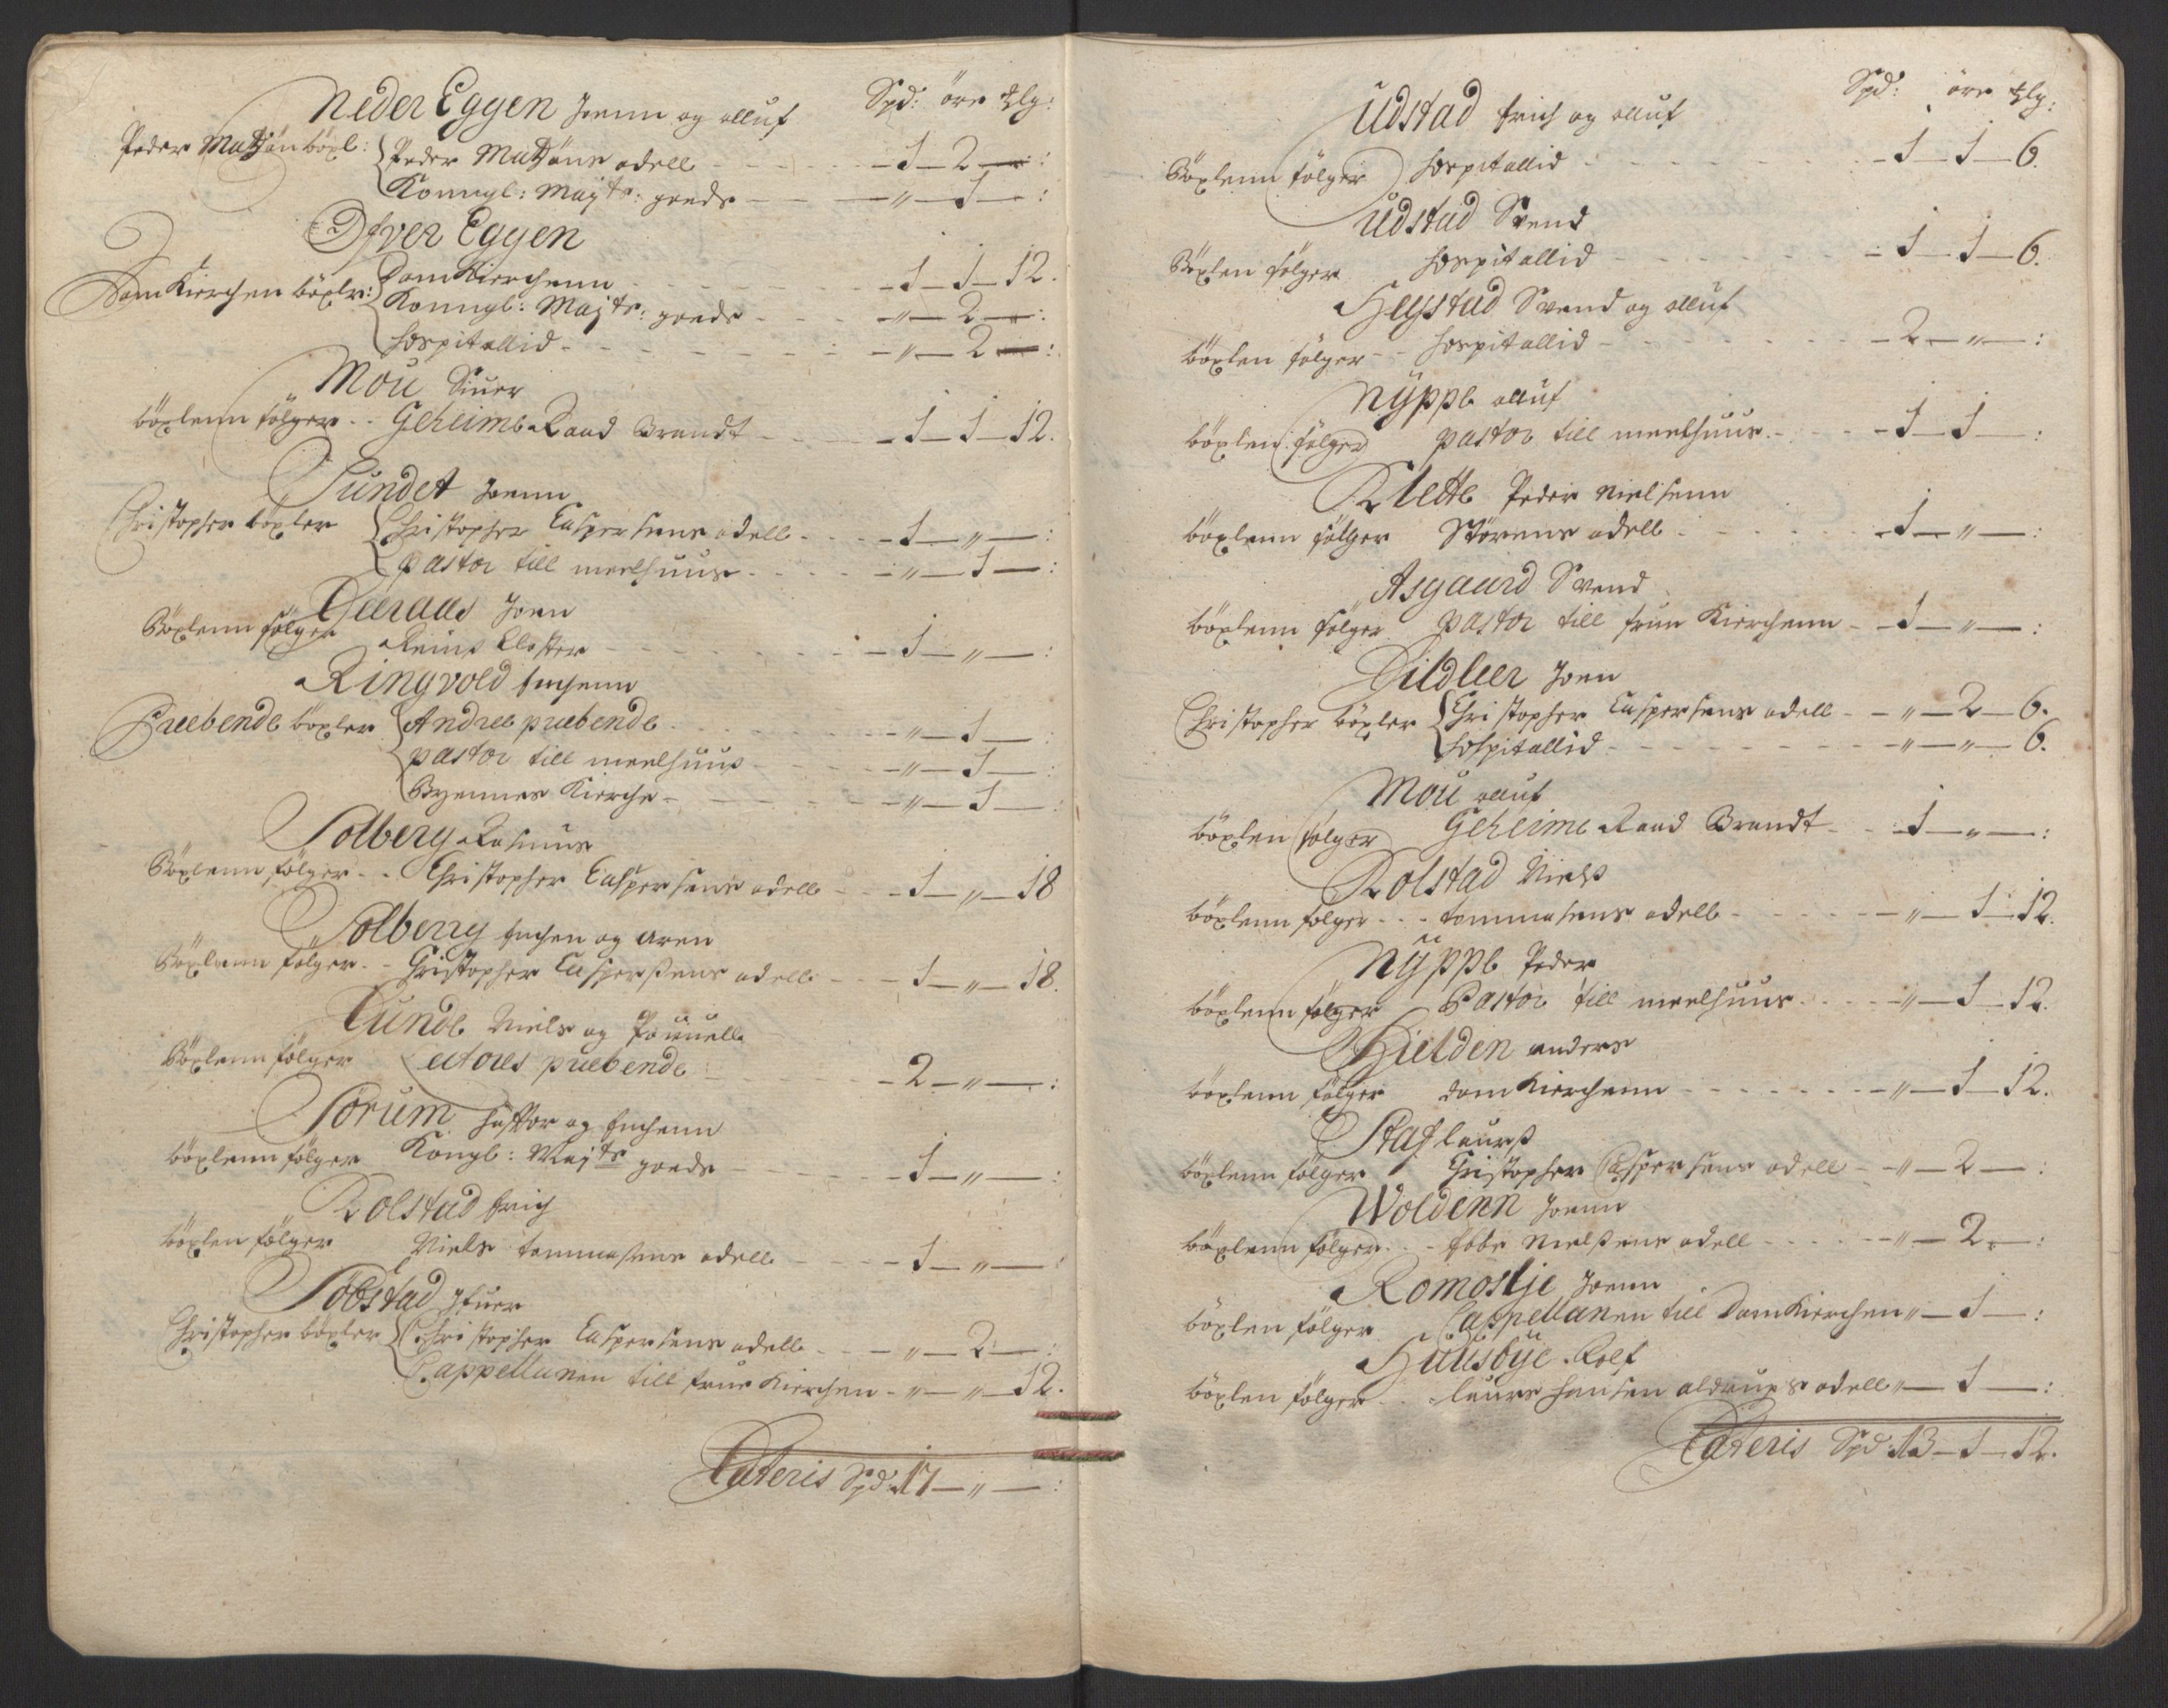 Neder Eggen Joenn og olluf Spd: öre Mlg:
Peder Matzön böxl: Peder Matzöns odell - 1 - 2 - :
Konngl: Mayts: goeds - " - 1 - :
Ofver Eggen
DomKierchen böxlr: DomKierchenn - 1 - 1 - 12.
Konngl: Mayts: goeds - " - 2 - :
Hospitallid - " - 2 - :
Mou Siuer
böxlenn fölger - Geheime Raad Brandt - 1 - 1 - 12.
Sundet Joenn
Christopher böxler Christopher Caspersens odell - 1 - " - :
Pastor till meelhuus - " - 1 - :
Joen
Böxlenn fölger Reins Closter - 1 - " - :
Ringvold Enchenn
Præbende böxler Andree præbende - " - 1 - :
pastor till meelhuus - " - 1 - :
Byennes Kierche - " - 1 - :
Solberg Rasmus
Böxlenn fölger - Christopher Caspersens odell - 1 - " - 18
Solberg Enchen og Aren
Böxlenn fölger - Christopher Casperßens odell - 1 - " - 18.
Lunde Niels og Pouuell
Böxlenn fölger Lectores præbende - 2 - " - :
Sorum og Enchenn
böxlenn fölger Kongl: Mayts goeds - 1 - " - :
Kolstad Erich
böxlen fölger Niels Tommesens odell - 1 - " - :
Söbstad Ifuer
Christopher böxler Christopher Caspersens odell - " - 2 - :
Cappellanen till frue Kierchen - " - " - 12.
Lateris Spd: 17 - " - :
Spd: öre Mlg:
Udstad Erich og olluf
Böxlenn fölger Hospitallid - 1 - 1 - 6.
Udstad Svend
Böxlen fölger Hospitallid - 1 - 1 - 6.
Hegstad Svend og olluf
böxlen fölger - Hospitallid - 2 - " - :
Nÿppe olluf
böxlen fölger pastor till meelhuus - 1 - 1 - :
Klette Peder Nielsenn
böxlenn fölger Störens odell - 1 - " - :
Asgaard Svend
böxlenn fölger pastor till frue Kierchenn - 1 - " - :
Joen
Christopher böxler Christopher Caspersens odell - " - 2 - 6.
Hospitallid - " - " - 6.
Mou olluf
böxlen fölger Geheime Raad Brandt - 1 - " - :
Kolstad Niels
böxlenn fölger - Tommesens odell - " - 1 - 12.
Nÿppe Peder
böxlenn fölger Pastor till meelhuus - " - 1 - 12.
Hielden anders
böxlenn fölger domKierchenn - " - 1 - 12.
Staf laurß
böxlenn fölger Christopher Caspersens odell - " - 2 - :
Woldenn Joenn
böxlenn fölger - Ebbe Nielßens odell - " - 2 - :
Romoslje Joenn
böxlen fölger Cappellanen till DomKierchen " - 1 - :
Huusbÿe Rolf
böxlen fölger - laurs hansen aldrups odell " - 1 - :
Lateris Spd: 13 - 1 - 12.